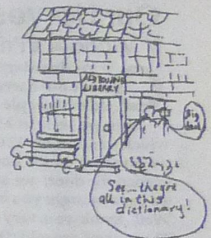 LIBRARY
Big
deal
See... they're
all in this
dictionary!